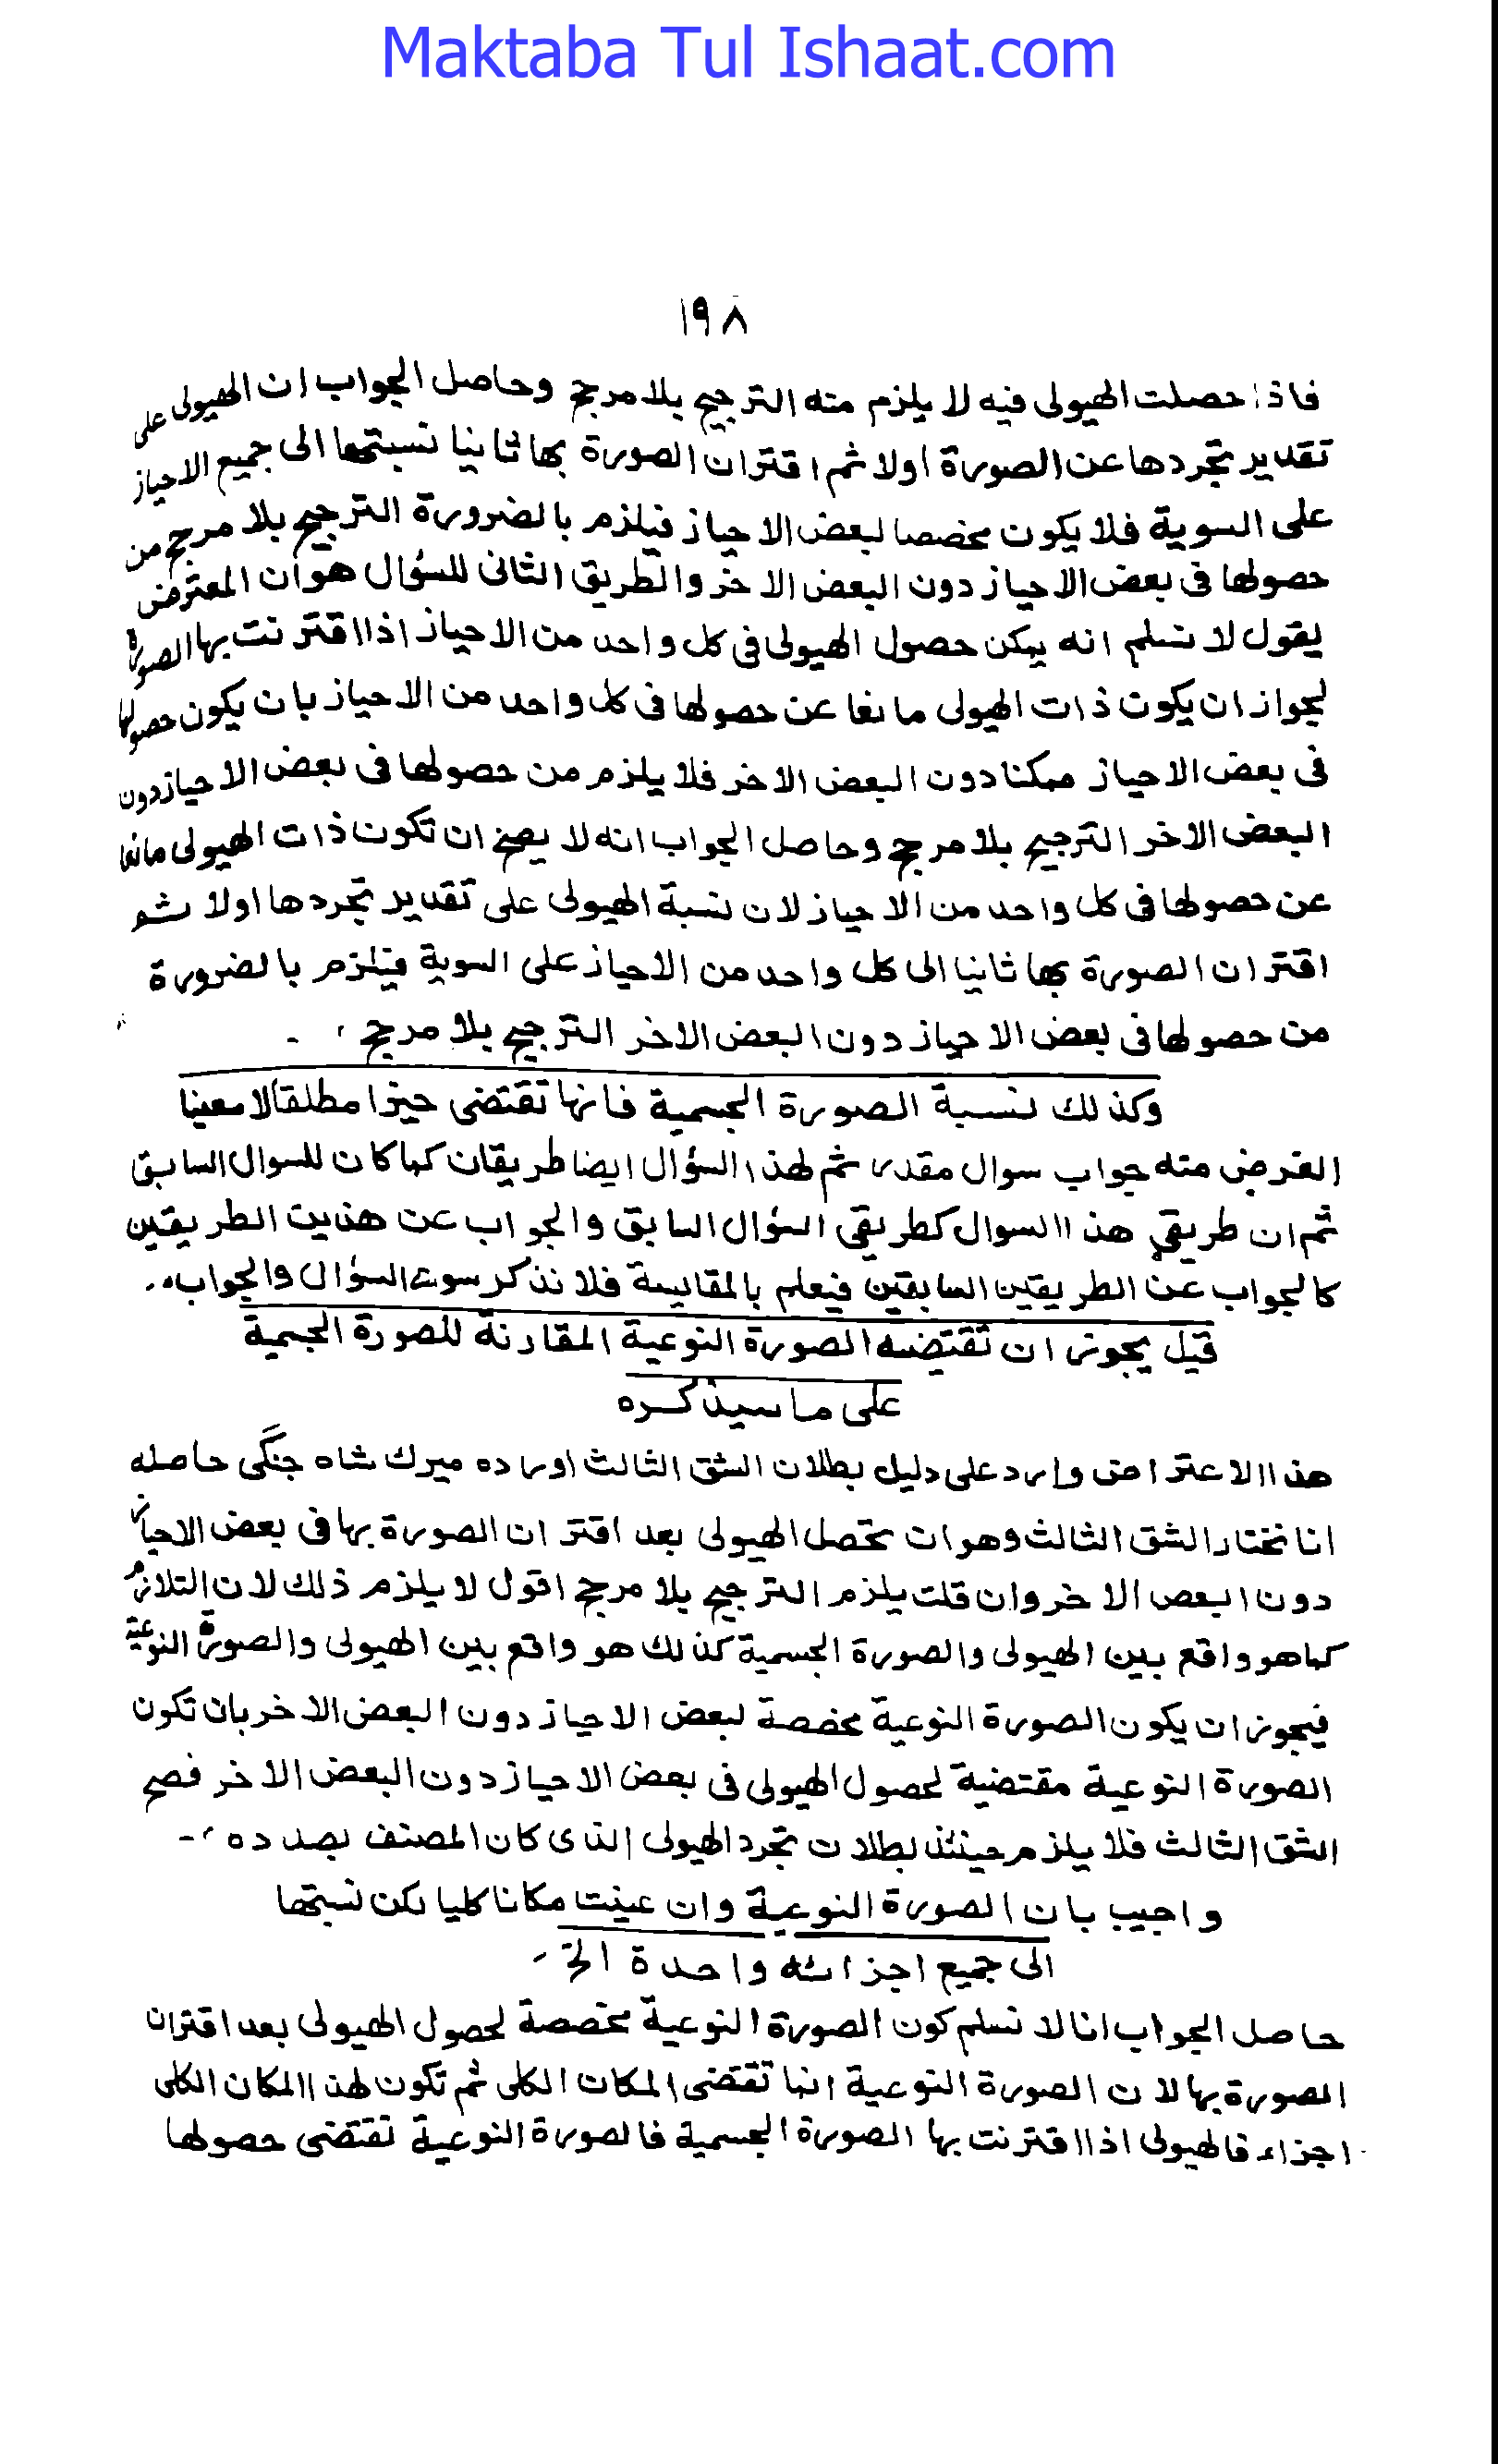 Maktaba Tul Ishaat.com
١٩٨
فاذا حصلت الهيولى فيه لا يلزم منه الترجيح بلا مرجح وحاصل الجواب ان الهيولى على
تقدير تجردها عن الصورة اولا ثم اقتران الصورة بها ثانيا نسبتها الى جميع الاحياز
على السوية فلا يكون مخصصا لبعض الاحياز فيلزم بالضرورة الترجيح بلا مرجح من
حصولها فى بعض الاحياز دون البعض الاخر والطريق الثانى للسؤال هو ان المعترض
يقول لا نسلم انه يمكن حصول الهيولى فى كل واحد من الاحياز اذا اقترنت بها الصورة
لجواز ان يكون ذات الهيولى مانعا عن حصولها فى كل واحد من الاحياز بان يكون حصولها
فى بعض الاحياز ممكنا دون البعض الاخر فلا يلزم من حصولها فى بعض الاحياز دون
البعض الاخر الترجيح بلا مرجح وحاصل الجواب انه لا يصح ان تكون ذات الهيولى مانعا
عن حصولها فى كل واحد من الاحياز لان نسبة الهيولى على تقدير تجردها اولا ثم
اقتران الصورة بها ثانيا الى كل واحد من الاحياز على السوية فيلزم بالضرورة
من حصولها فى بعض الاحياز دون البعض الاخر الترجيح بلا مرجح ، ـ
وكذلك نسبة الصورة الجسمية فانها تقتضى حيزا مطلقا لا معينا
الغرض منه جواب سوال مقدر ثم لهذا السؤال ايضا طريقان كما كان للسوال السابق
ثم ان طريقي هذا السوال كطريقي السؤال السابق والجواب عن هذين الطريقين
كالجواب عن الطريقين السابقين فيعلم بالمقايسة فلا نذكر سوى السؤال والجواب،.
قيل يجوز ان تقتضيه الصورة النوعية المقارنة للصورة الجسمية
على ما سيذكره
هذا الاعتراض وارد على دليل بطلان الشق الثالث اورده ميرك شاه جنگى حاصله
انا نختار الشق الثالث وهو ان تحصل الهيولى بعد اقتران الصورة بها فى بعض الاحياز
دون البعض الاخر وان قلت يلزم الترجيح بلا مرجح اقول لا يلزم ذلك لان التلازم
كما هو واقع بين الهيولى والصورة الجسمية كذلك هو واقع بين الهيولى والصورة النوعية
فيجوز ان يكون الصورة النوعية مخصصة لبعض الاحياز دون البعض الاخر بان تكون
الصورة النوعية مقتضية لحصول الهيولى فى بعض الاحياز دون البعض الاخر فصح
الشق الثالث فلا يلزم حينئذ بطلان تجرد الهيولى الذى كان المصنف بصدده ،ـ
واجيب بان الصورة النوعية وان عينت مكانا كليا لكن نسبتها
الى جميع اجزائه واحدة الخ ـ
حاصل الجواب انا لا نسلم كون الصورة النوعية مخصصة لحصول الهيولى بعد اقتران
الصورة بها لان الصورة النوعية انما تقتضى المكان الكلى ثم تكون لهذا المكان الكلى
اجزاء فالهيولى اذا اقترنت بها الصورة الجسمية فالصورة النوعية تقتضى حصولها